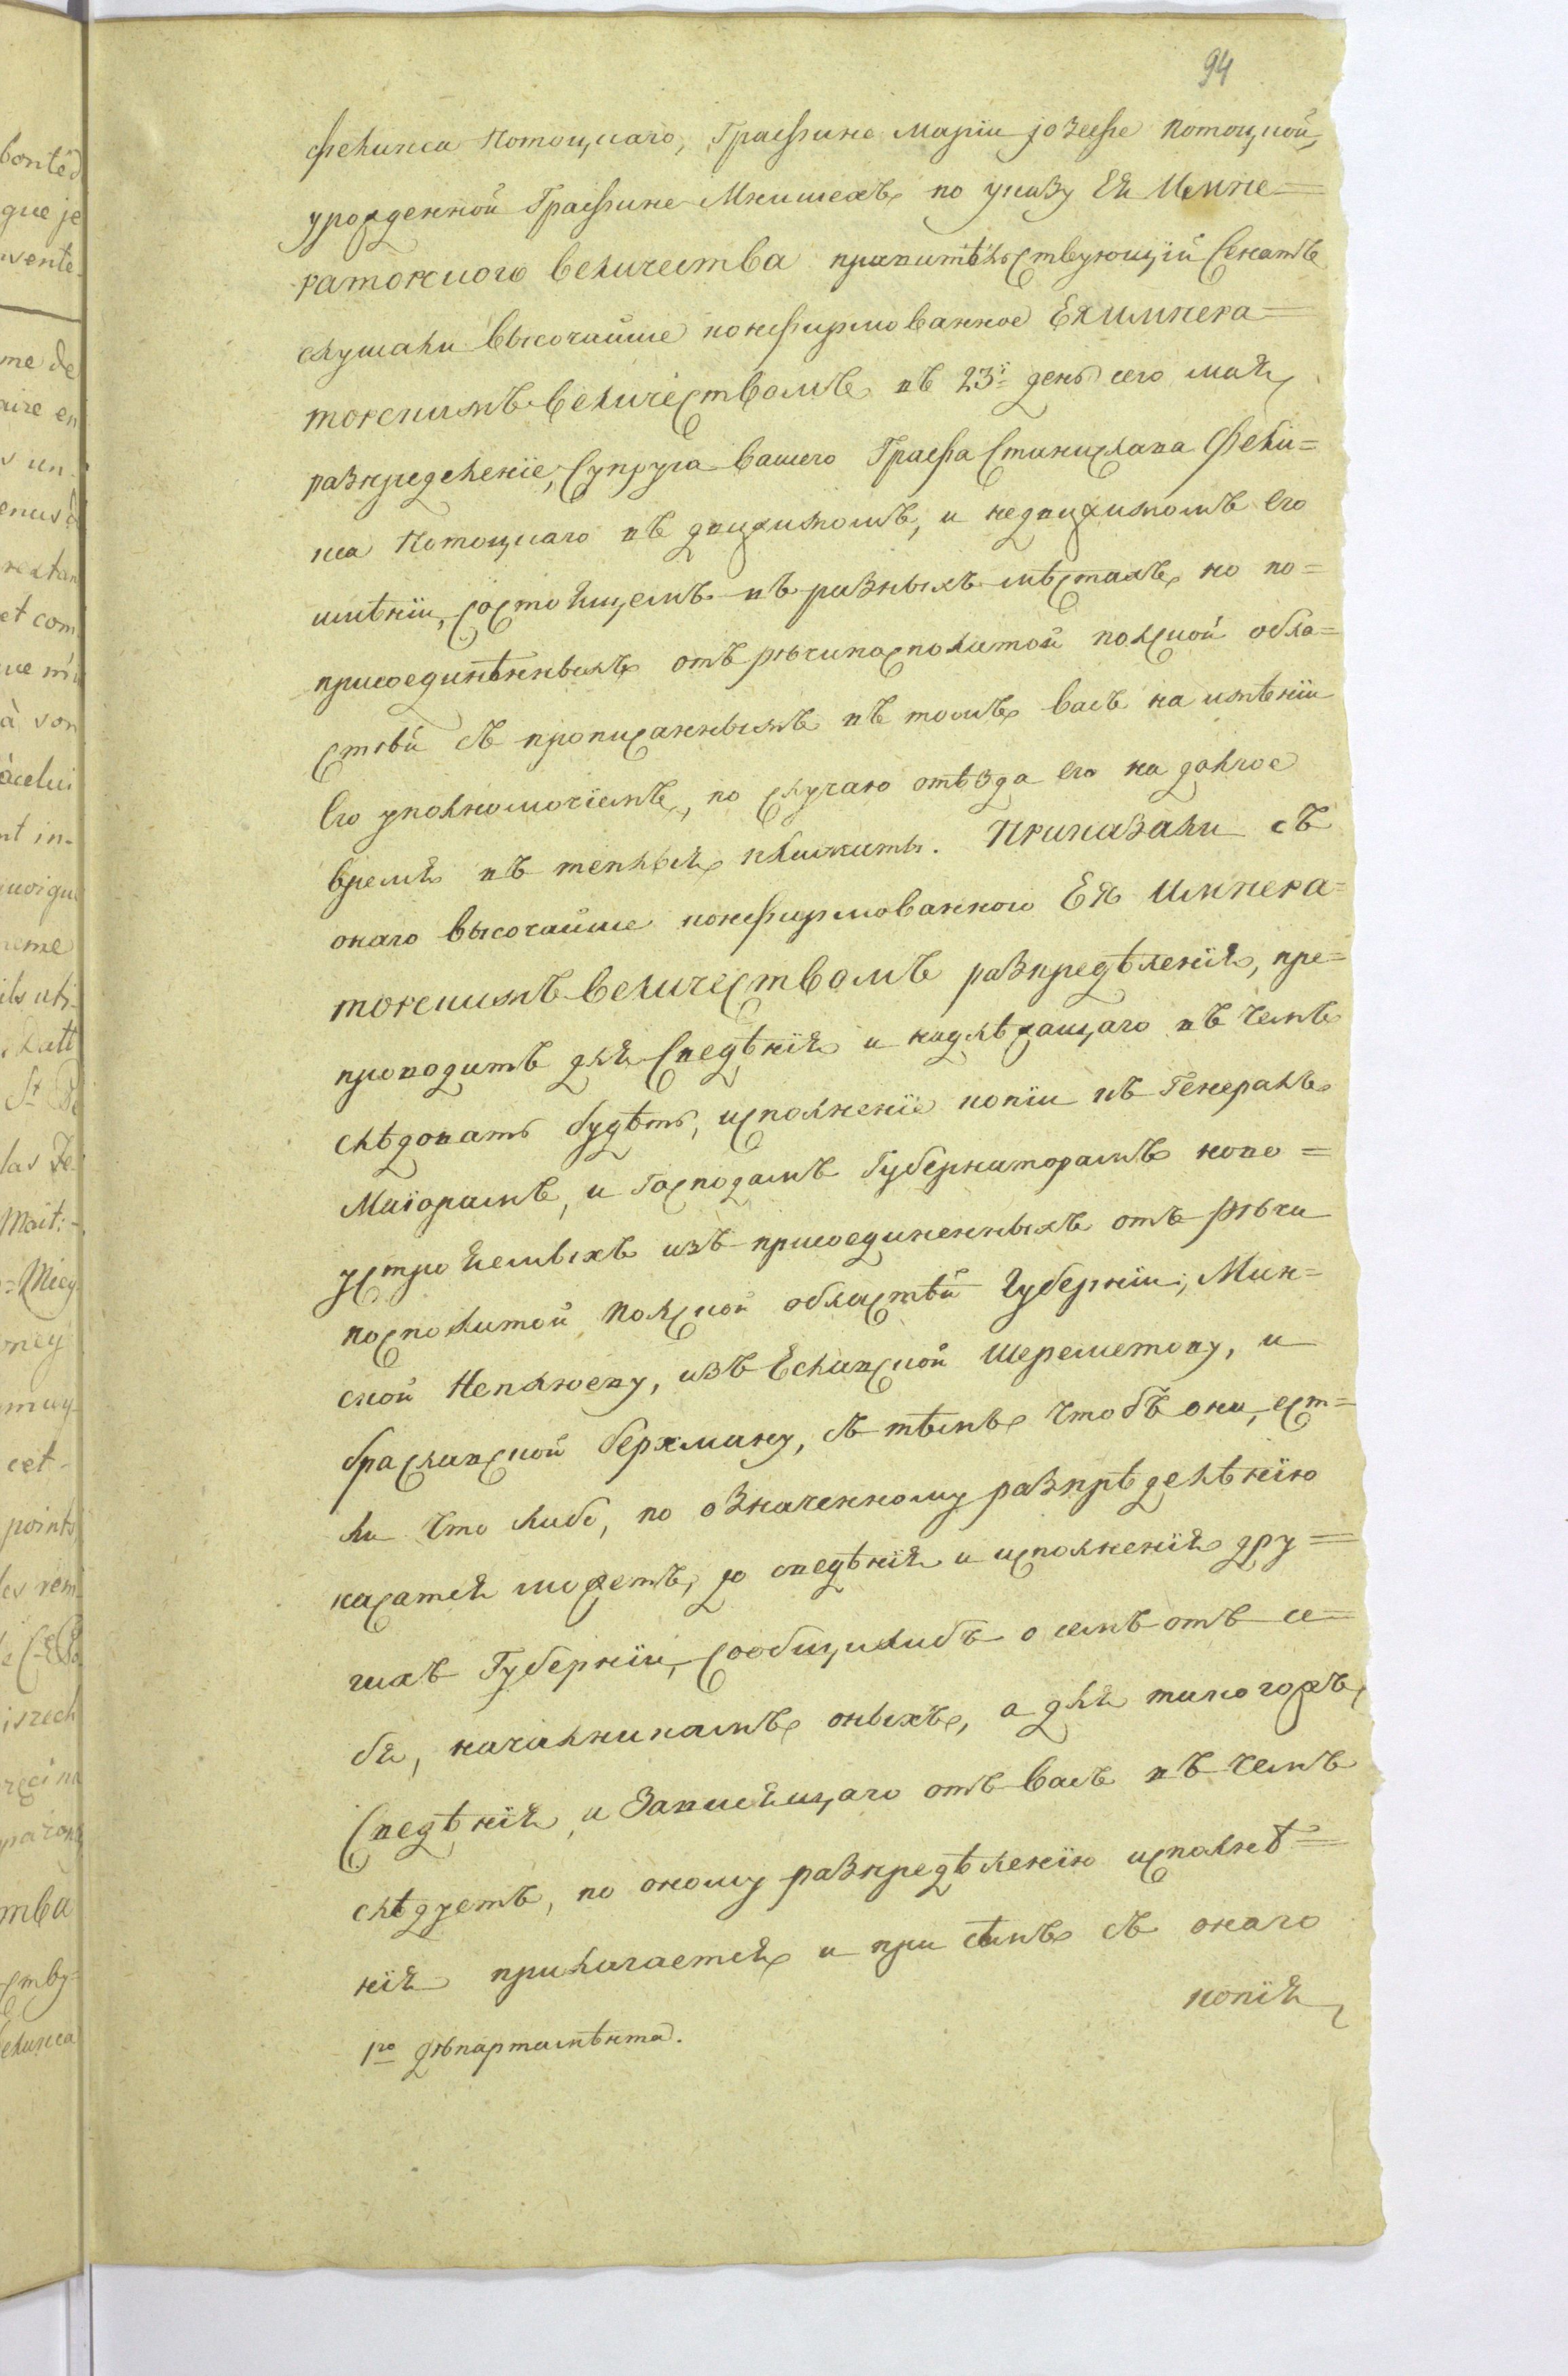 94
Феликса Потоцкаго, Графине Марiи Jозефе Потоцкой,
урожденной Графине Мнишехъ по указу Ея Импе=
раторского Величества правитѣльствующiй Сенатъ
слушали Высочайше конфирмованное Ея Импера=
торскимъ Величествомъ въ 23й день сего мая
разпределенiе, Супруга Вашего Графа Станислава Фели=
кса Потоцкаго въ движимомъ, и недвижимомъ Его
имѣнiи, состоящемъ въ разныхъ мѣстахъ но по=
присоединѣнныхъ отъ рѣчипосполитой полской обла=
стѣй съ прописаннымъ въ томъ Васъ на имѣнiи
Его уполномочiемъ, по случаю отъѣзда Его на долгое
Время въ теплыя климаты. Приказали съ
онаго Высочайше конфирмованного Ея Импера=
торскимъ Величествомъ разпредѣленiя, пре=
проводить для Сведѣнiя и надлѣжащаго въ чемъ
слѣдовать будѣтъ, исполненiе копiи къ Генералъ
Маiорамъ, и Господамъ Губернаторамъ ново=
устрояемыхъ изъ присоединенныхъ отъ рѣчи
посполитой Полской областѣй Губернiи, Мин=
ской Неплюеву, изъ Еславской Шереметову, и
браславской берхману, съ тѣмъ чтобъ они, ест=
ли что либо, по означенному разпрѣделѣнiю
касатся можетъ, до сведѣнiя и исполненiя дру=
гихъ Губернiи, Сообщилибъ о семъ отъ се=
бя, началникамъ оныхъ, а для таковогожъ
Сведѣнiя и Зависящаго отъ Васъ въ чемъ
слѣдуетъ, по оному разпредѣленiю исполнѣ=
нiя прилагается и при сѣмъ съ онаго
копiя
1го дѣпартамѣнта.